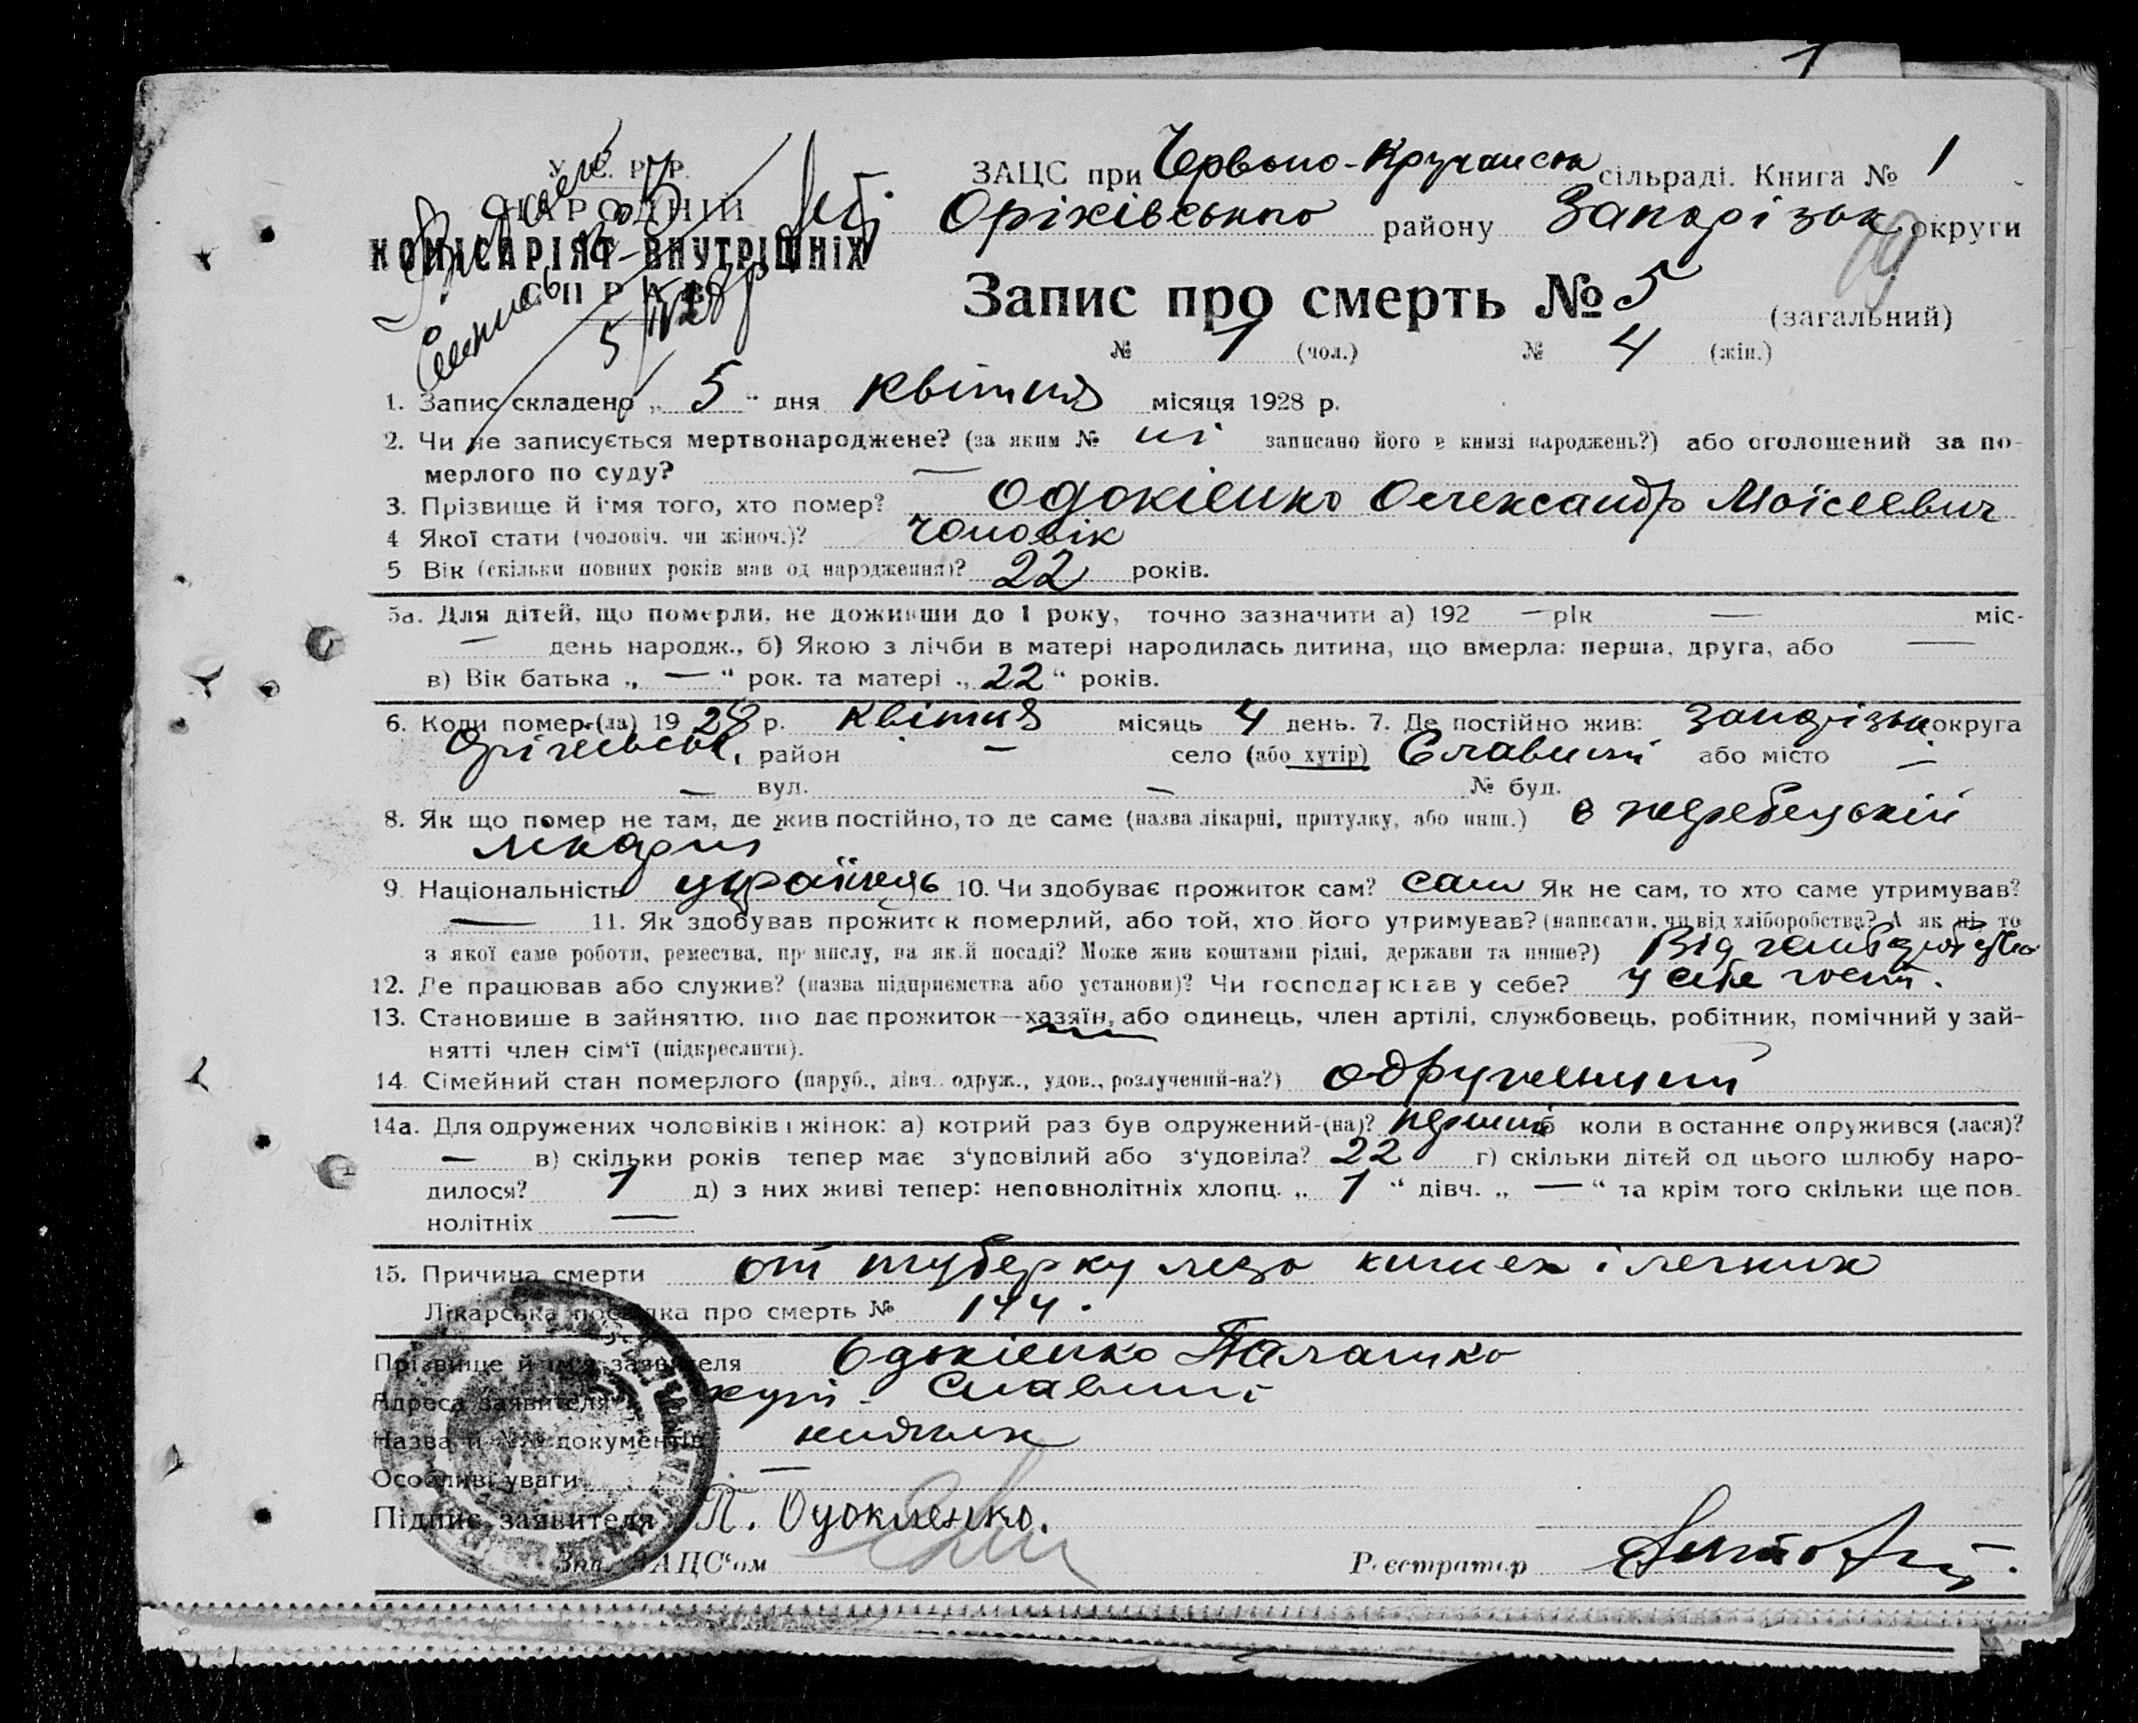 1
У. С. Р. Р.
НАРОДНІЙ
КОМІСАРІЯТ ВНУТРІШНІХ
СПРАВ
5/IV 28 р
ЗАЦС при Червоно-Кручанск сільраді. Книга № 1
Оріхівського району Запорізьк округи
Запис про смерть № 5 (загальний)
№ 1 (чол.) № 4 (жін.)
1. Запис складено „ 5 “ дня квітня місяця 1928 р.
2. Чи не записується мертвонароджене? (за яким № ні записано його в книзі народжень?) або оголошений за по-
мерлого по суду? —
3. Прізвище й ім'я того, хто помер? Одокіенко Олександр Мойсеевич
4 Якої стати (чоловіч. чи жіноч.)? чоловік
5 Вік (скільки повних років мав од народження)? 22 років.
5а. Для дітей, що померли, не доживши до 1 року, точно зазначити а) 192 — рік — міс-
— день народж., б) Якою з лічби в матері народилась дитина, що вмерла: перша, друга, або —
в) Вік батька „ — “ рок. та матері „ 22 “ років.
6. Коли помер-(ла) 19 28 р. квітня місяць 4 день. 7. Де постійно жив: Запорізьк округа
Оріхівськ, район — село (або хутір) Славний або місто —
— вул. — № буд.
8. Як що помер не там, де жив постійно, то де саме (назва лікарні, притулку, або инш.) в жеребецькій
лікарні
9. Національність українець 10. Чи здобуває прожиток сам? сам Як не сам, то хто саме утримував?
— 11. Як здобував прожиток померлий, або той, хто його утримував? (написати, чи від хліборобства? А як ні, то
з якої саме роботи, ремества, промислу, на якій посаді? Може жив коштами рідні, держави та инше?) Від
12. Де працював або служив? (назва підприємства або установи)? Чи господарював у себе? у себе госп.
13. Становище в зайняттю, що дає прожиток—хазяїн, або одинець, член артілі, службовець, робітник, помічний у зай-
нятті член сім'ї (підкреслити).
14. Сімейний стан померлого (паруб., дівч. одруж., удов., розлучений-на?) одружений
14а. Для одружених чоловіків і жінок: а) котрий раз був одружений-(на)? перший б коли востаннє одружився (лася)?
— в) скільки років тепер має з'удовілий або з'удовіла? 22 г) скільки дітей од цього шлюбу наро-
дилося? 1 д) з них живі тепер: неповнолітніх хлопц. „ 1 “ дівч. „ — “ та крім того скільки ще пов-
нолітніх —
15. Причина смерти от туберкулеза кишек і легких
Лікарська посвідка про смерть № 144.
Прізвище й ім'я заявителя Одокіенко Палашко
Адреса заявителя хут. Славний
Назва й №№ документів
Особливі уваги —
Підпис заявителя П. Одокиенко.
Зав. ЗАЦС'ом Реєстратор